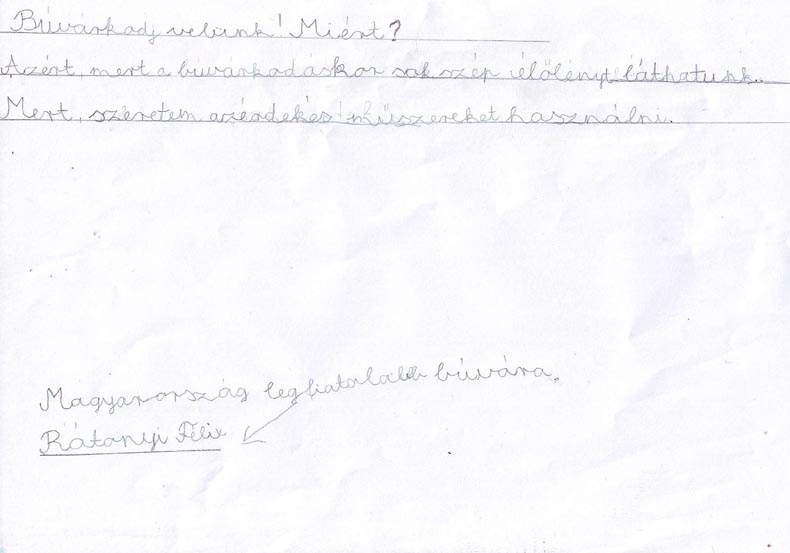 Búvárkodj velünk! Miért?
Azért, mert a búvárkodáskor sok szép élőlényt láthatunk.
Mert, szeretem azérdekés műszereket használni.
Magyarország legfiatalabb búvára.
Rátonyi Félix